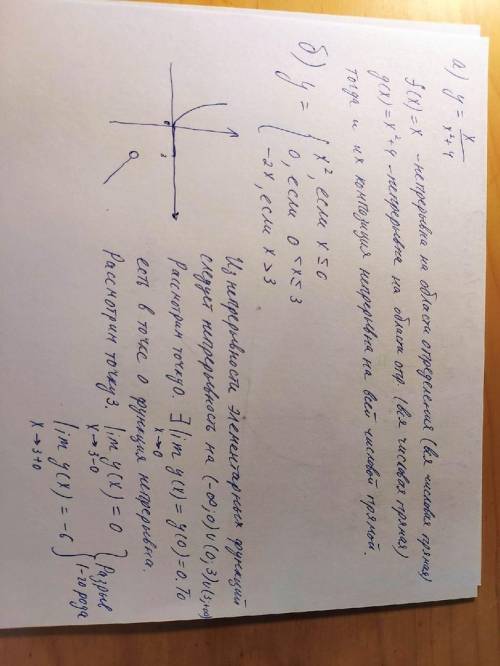 а) y = x/(x²+4)
f(x) = x - непрерывна на области определения (вся числовая прямая)
g(x) = x²+4 - непрерывна на области опр (вся числовая прямая)
тогда и их композиция непрерывна на всей числовой прямой.
б) y = { x², если x ≤ 0
0, если 0 < x ≤ 3
-2x, если x > 3
Из непрерывности элементарных функций
следует непрерывность на (-∞; 0) ∪ (0; 3) ∪ (3; +∞)
Рассмотрим точку 0. ∃ lim y(x) = y(0) = 0. То
x → 0
есть в точке 0 функция непрерывна.
Рассмотрим точку 3. lim y(x) = 0 } Разрыв
x → 3-0
lim y(x) = -6 } 1-го рода
x → 3+0